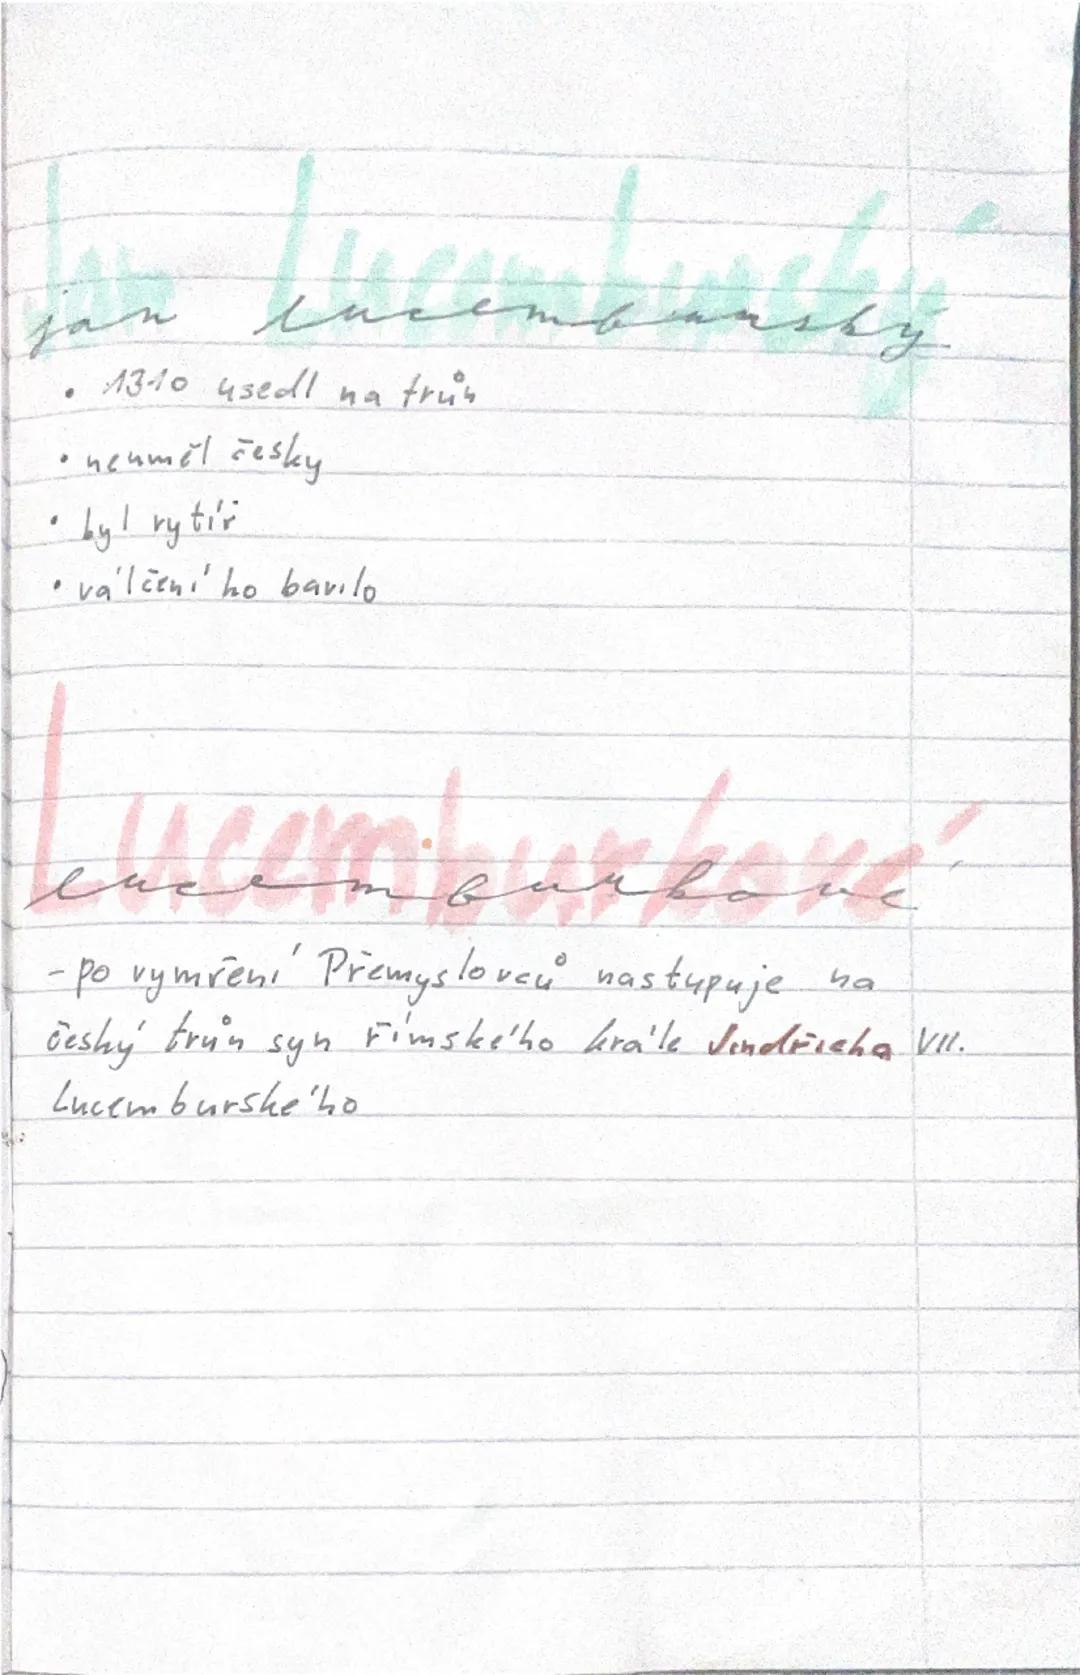 Jan Lucemburský
jan lucemburský
• 1310 usedl na trůn
• neuměl česky
• byl rytíř
• válčení ho bavilo
Lucemburkové
lucemburkové
- po vymření Přemyslovců nastupuje na
český trůn syn římského krále Jindřicha VII.
Lucemburského